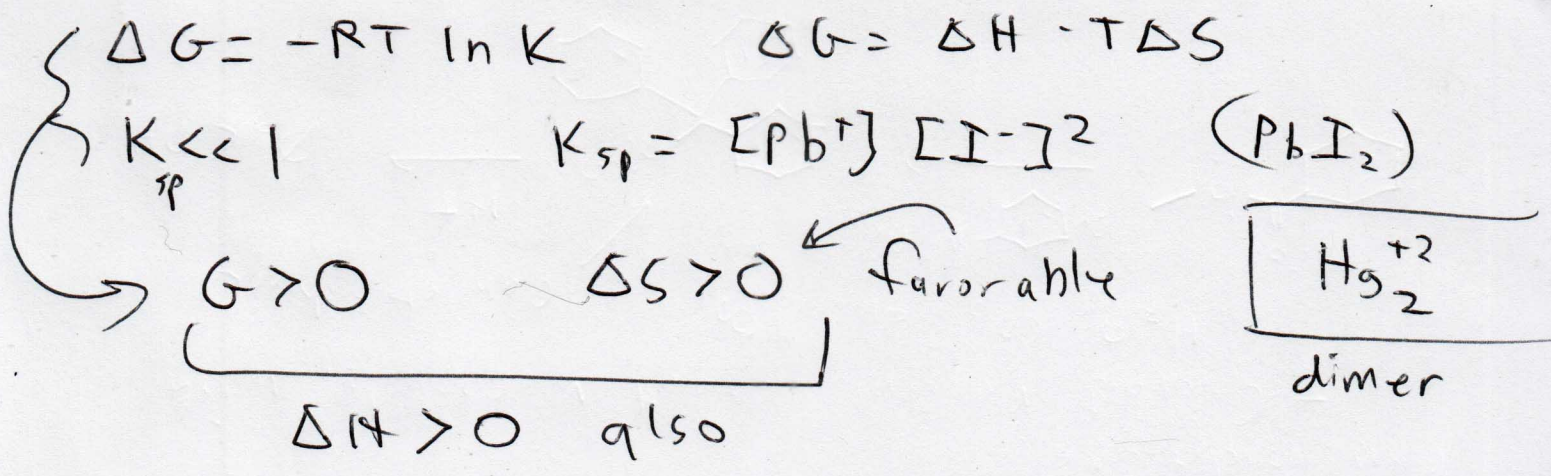 ΔG = -RT ln K    ΔG = ΔH - TΔS
Ksp << 1    Ksp = [Pb+] [I-]²    (PbI₂)
G > 0    ΔS > 0    favorable    Hg₂+2
dimer
ΔH > 0 also